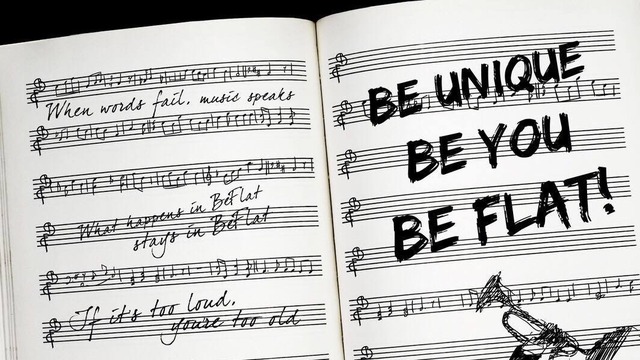 When words fail, music speaks
What happens in BeFlat
stays in BeFlat
If it's too loud,
you're too old
BE UNIQUE
BE YOU
BE FLAT!